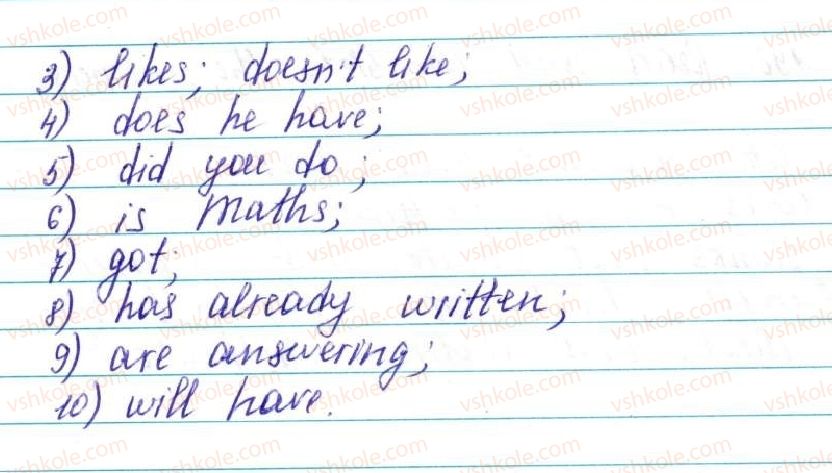 3) likes; doesn't like;
4) does he have;
5) did you do;
6) is Maths;
7) got;
8) has already written;
9) are answering;
10) will have.